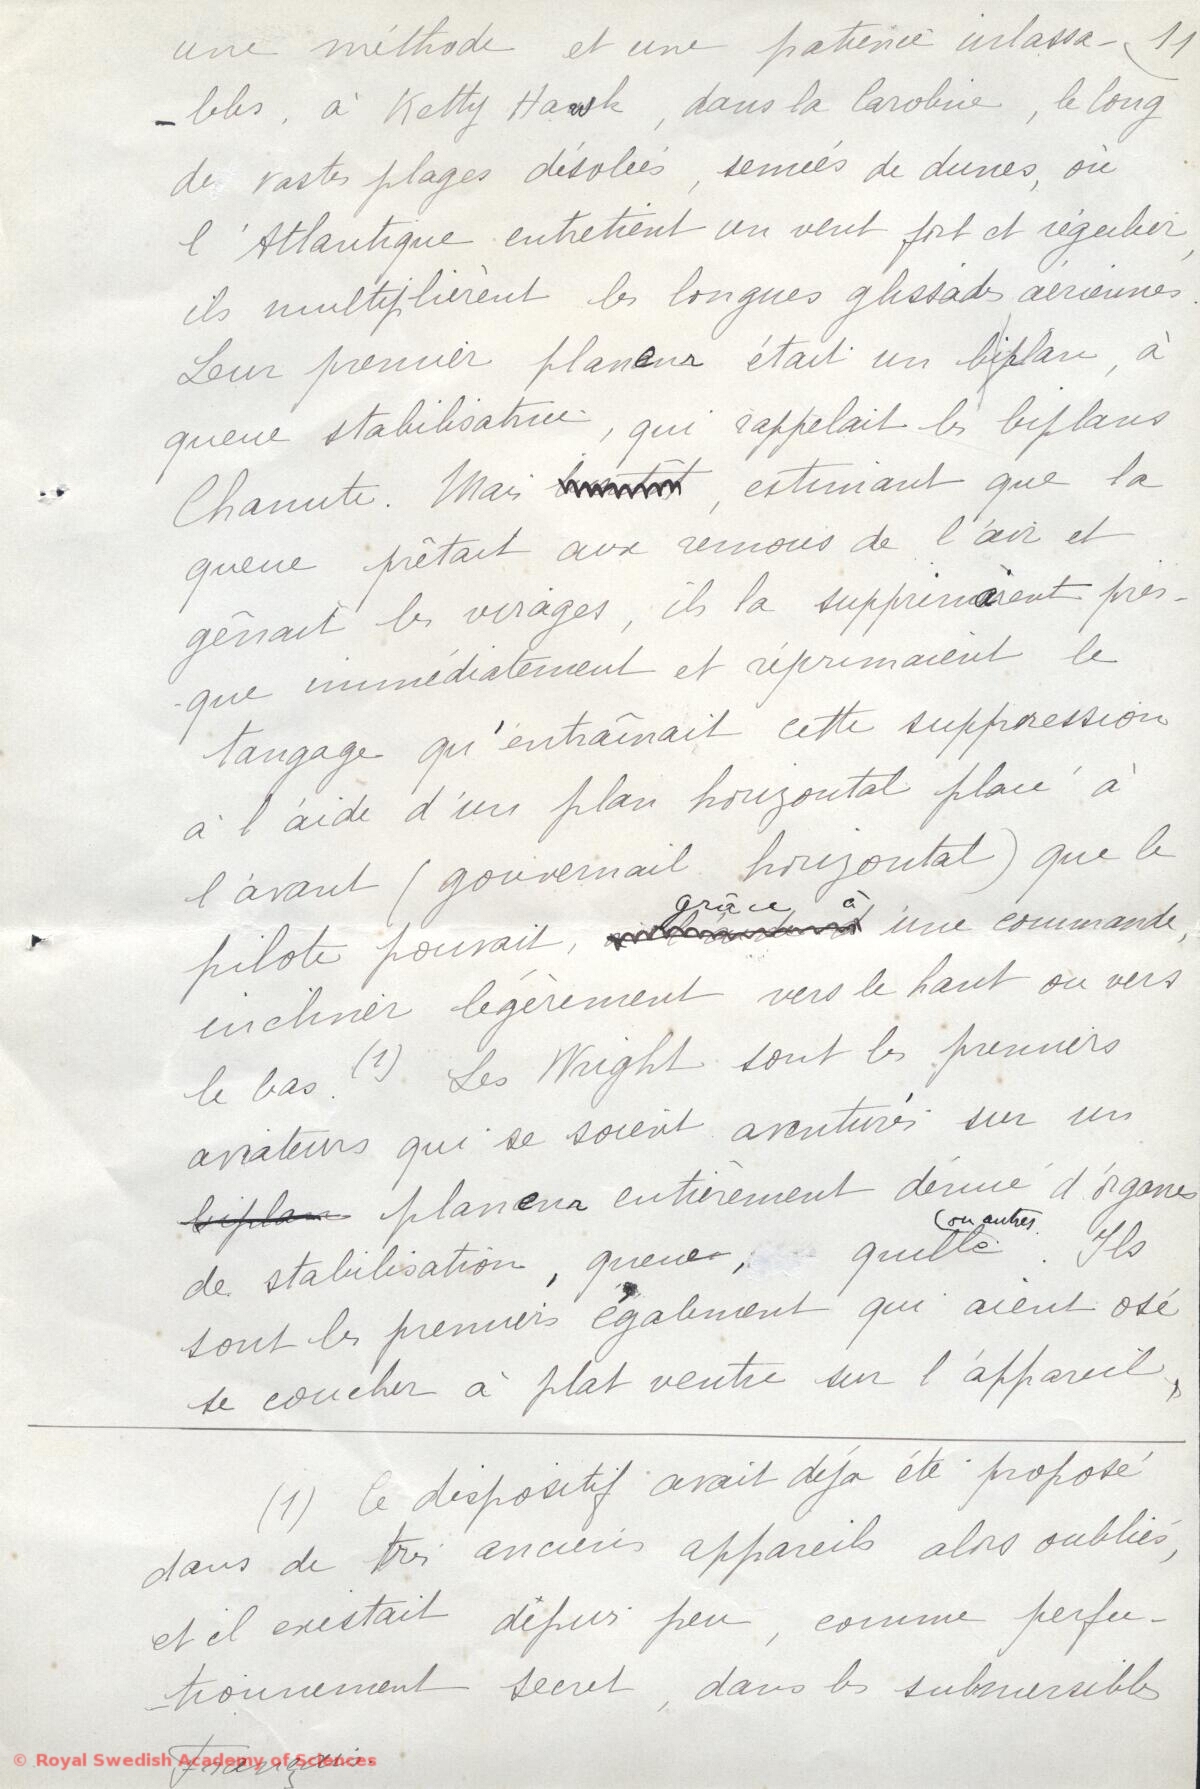 une méthode et une patience inlassa- 11
-bles, à Ketty Hawk, dans la Caroline, le long
de vastes plages désolées, semées de dunes, où
l'Atlantique entretient un vent fort et régulier,
ils multiplièrent les longues glissades aériennes.
Leur premier planeur était un biplan, à
queue stabilisatrice, qui rappelait les biplans
Chanute. Mais bientôt, estimant que la
queue prêtait aux remous de l'air et
gênait les virages, ils la supprimaient pres-
-que immédiatement et réprimaient le
tangage qu'entraînait cette suppression
à l'aide d'un plan horizontal placé à
l'avant (gouvernail horizontal) que le
grâce à
pilote pouvait, une commande,
incliner légèrement vers le haut ou vers
le bas.(1) Les Wright sont les premiers
aviateurs qui se soient aventurés sur un
biplan planeur entièrement dénué d'organes
(ou autres.
de stabilisation, queue, quille. Ils
sont les premiers également qui aient osé
se coucher à plat ventre sur l'appareil,
(1) Ce dispositif avait déjà été proposé
dans de très anciens appareils alors oubliés,
et il existait depuis peu, comme perfec-
-tionnement secret, dans les submersibles
français.
© Royal Swedish Academy of Sciences